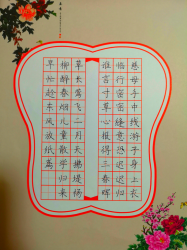 慈母手中线游子身上衣
临行密密缝意恐迟迟归
谁言寸草心报得三春晖
草长莺飞二月天拂堤杨
柳醉春烟儿童散学归来
早忙趁东风放纸鸢